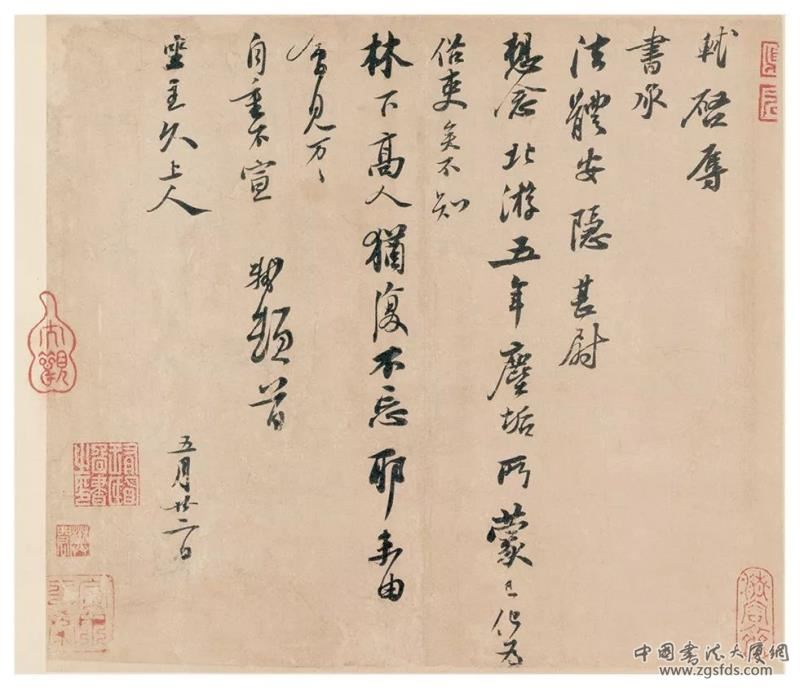 軾啓辱
書承
法體安隱甚尉
想念北游五年塵垢所蒙已化為
俗吏矣不知
林下高人猶復不忘耶未由
會見万々
自重不宣 軾頓首
坐主久上人
五月廿二日
中國書法大廈網
www.zgsfds.com